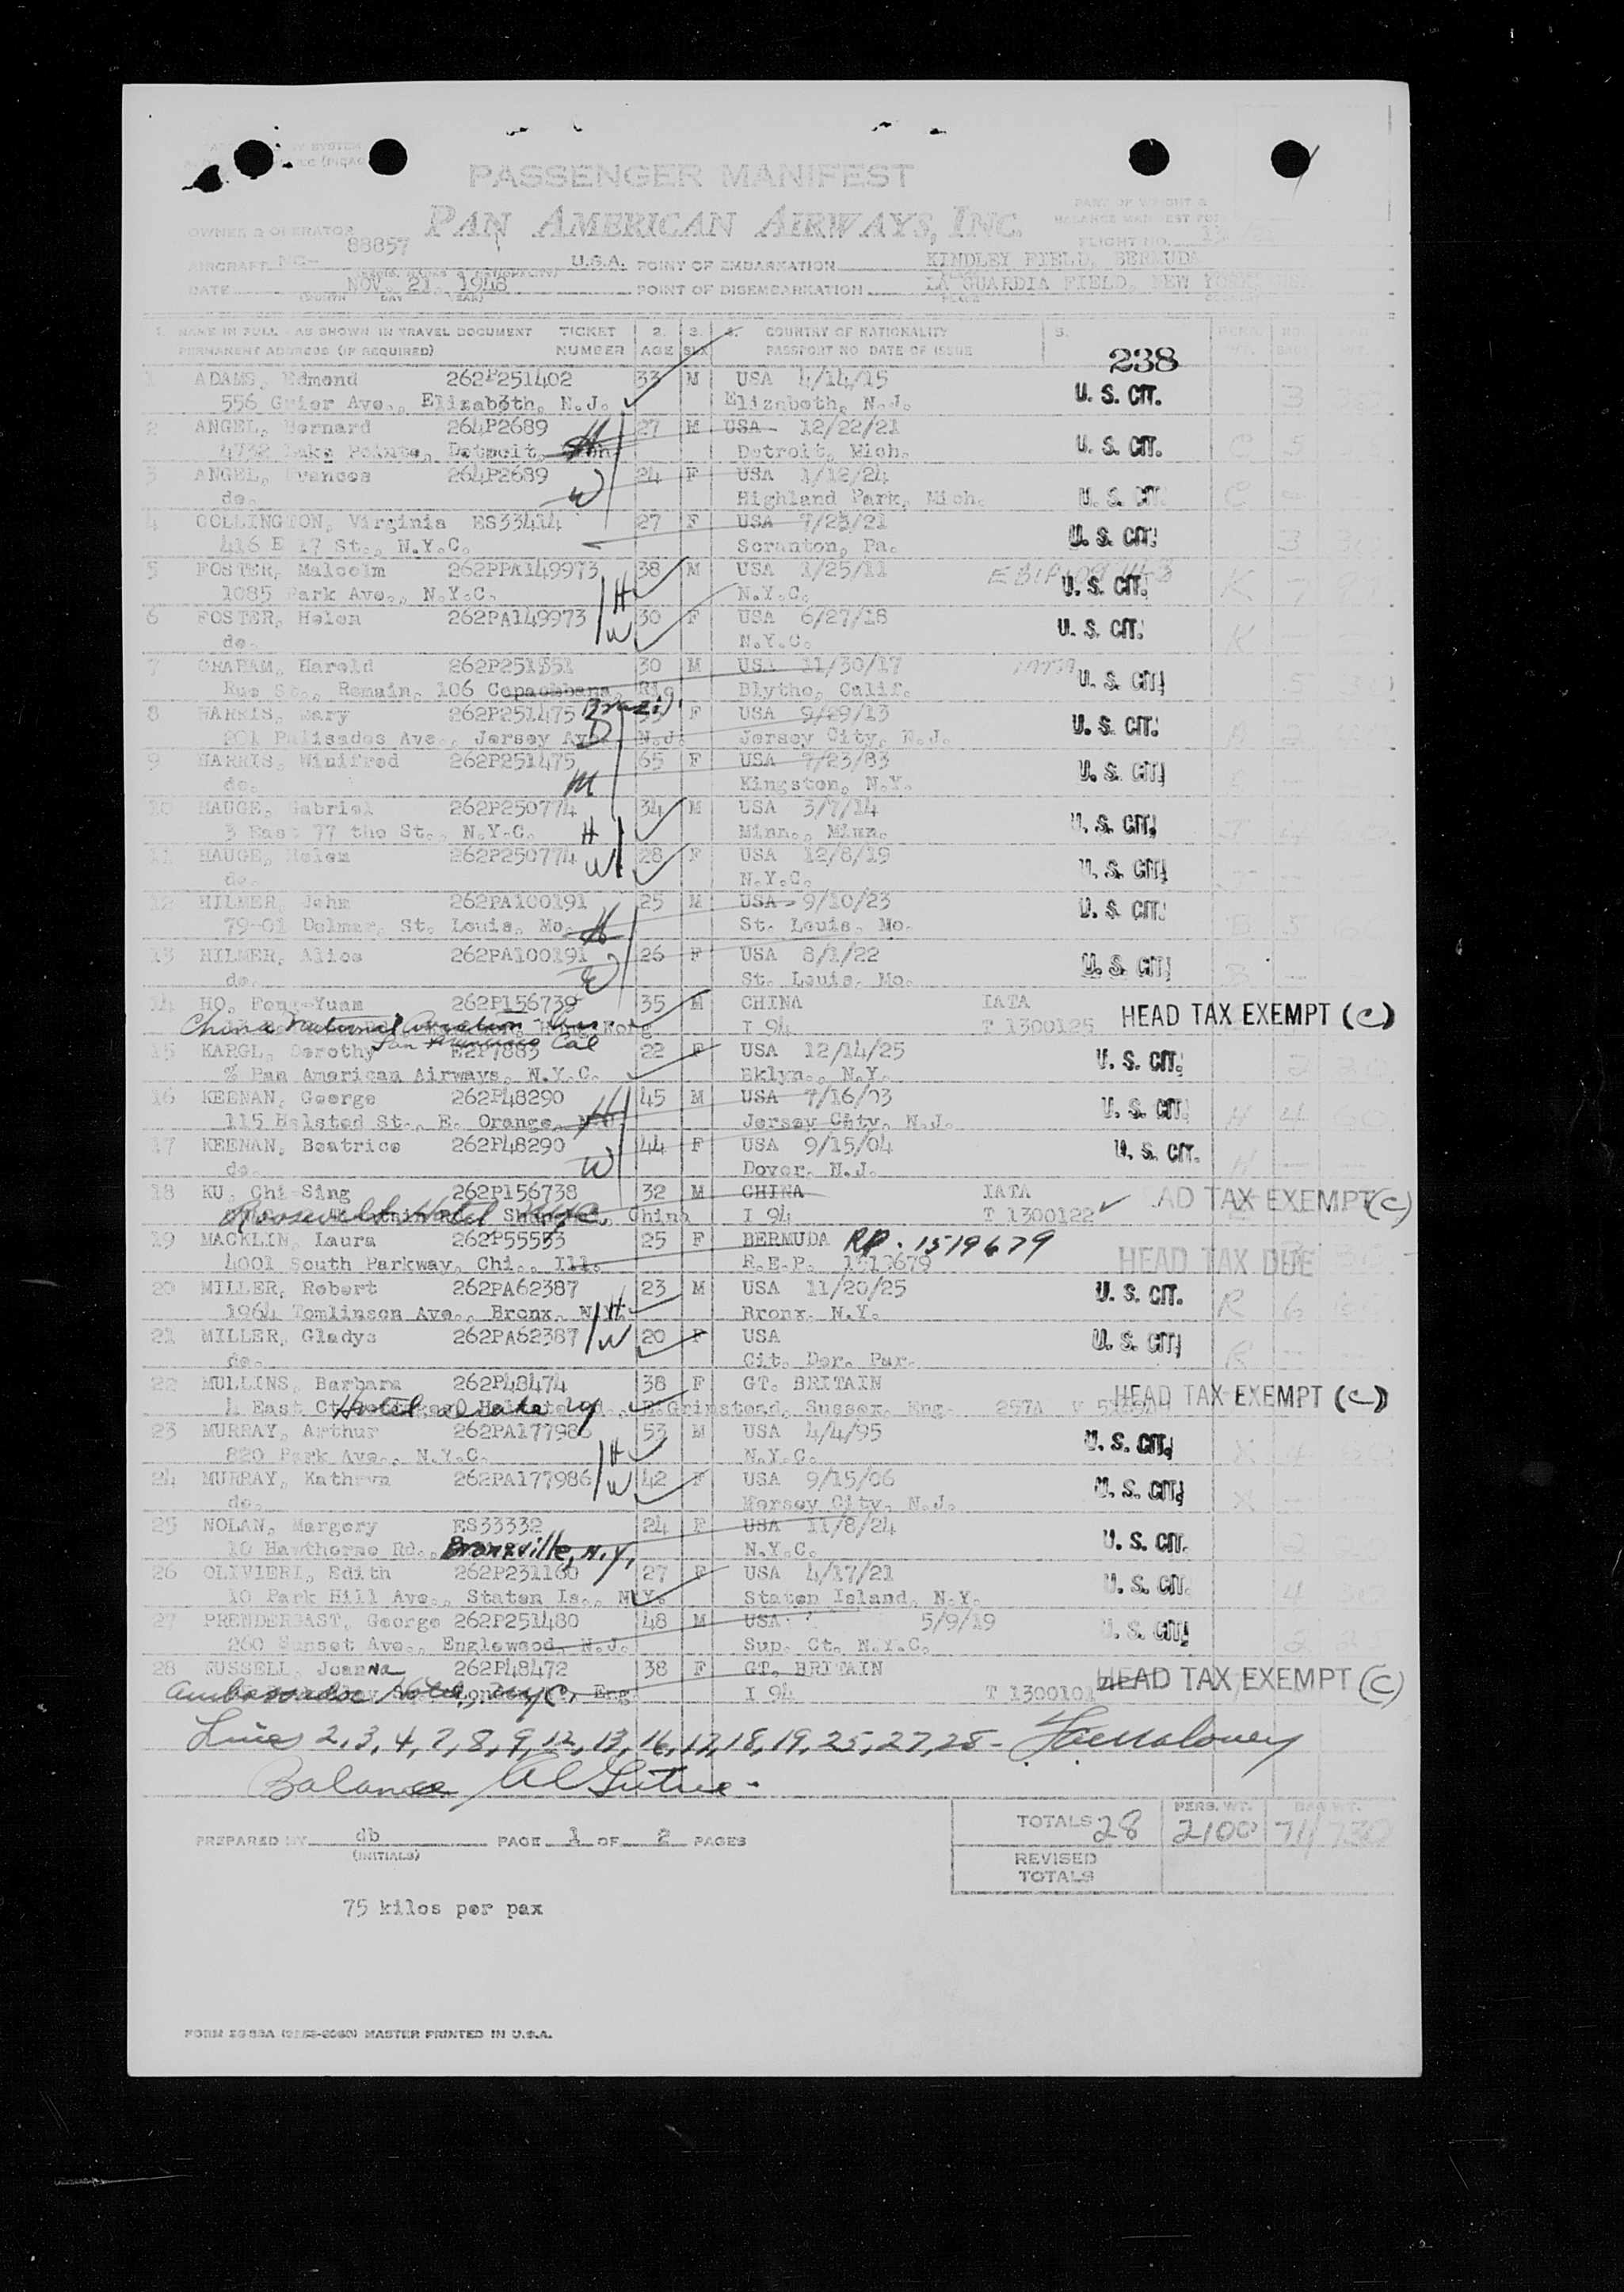 PASSENGER MANIFEST
PAN AMERICAN AIRWAYS, INC.
OWNER & OPERATOR
FLIGHT NO.
AIRCRAFT NC- 88857 U.S.A. POINT OF EMBARKATION KINDLEY FIELD, BERMUDA
DATE NOV. 21, 1948 POINT OF DISEMBARKATION LA GUARDIA FIELD, NEW YORK,
(MONTH DAY YEAR) PLACE
1. NAME IN FULL - AS SHOWN IN TRAVEL DOCUMENT TICKET 2. 3. 4. COUNTRY OF NATIONALITY 5.
PERMANENT ADDRESS (IF REQUIRED) NUMBER AGE SEX PASSPORT NO DATE OF ISSUE
238
1 ADAMS, Edmond 262P251402 33 M USA 4/14/15 U. S. CIT. 3
556 Grier Ave., Elizabeth, N.J. Elizabeth, N.J.
2 ANGEL, Bernard 264P2689 27 M USA 12/22/21 U. S. CIT. C 5
4732 Lake Pointe, Detroit, H Detroit, Mich.
3 ANGEL, Frances 264P2689 24 F USA 1/12/24 U. S. CIT. C
do. W Highland Park, Mich.
4 COLLINGTON, Virginia ES33414 27 F USA 7/23/21 U. S. CIT. 3
416 E 17 St., N.Y.C. Scranton, Pa.
5 FOSTER, Malcolm 262PPA149973 38 M USA 1/25/11 U. S. CIT. K 7
1085 Park Ave., N.Y.C. H N.Y.C.
6 FOSTER, Helen 262PA149973 30 F USA 6/27/18 U. S. CIT. K
do. W N.Y.C.
7 GRAHAM, Harold 262P251551 30 M USA 11/30/17 U. S. CIT. 5
Rue St., Romain, 106 Copacobana, Rio Brazil Blythe, Calif.
8 HARRIS, Mary 262P251475 35 F USA 9/29/13 U. S. CIT.
201 Palisades Ave., Jersey Ave. D N.J. Jersey City, N.J.
9 HARRIS, Winifred 262P251475 65 F USA 7/23/83 U. S. CIT.
do. M Kingston, N.Y.
10 HAUGE, Gabriel 262P250774 34 M USA 3/7/14 U. S. CIT. J
3 East 77 the St., N.Y.C. H Minn., Minn.
11 HAUGE, Helen 262P250774 28 F USA 12/8/19 U. S. CIT. J
do. W N.Y.C.
12 HILMER, John 262PA100191 25 M USA 9/10/23 U. S. CIT. B 5
79-01 Delmar, St. Louis, Mo. H St. Louis, Mo.
13 HILMER, Alice 262PA100191 26 F USA 8/1/22 U. S. CIT. B
do. W St. Louis, Mo.
14 HO, Fong-Yuan 262P156739 35 M CHINA IATA HEAD TAX EXEMPT (C)
China National Aviation Hong Kong I 94 T 1300125
San Francisco Cal
15 KARGL, Dorothy E2P7883 22 F USA 12/14/25 U. S. CIT. 2
% Pan American Airways, N.Y.C. Bklyn., N.Y.
16 KEENAN, George 262P48290 45 M USA 7/16/03 U. S. CIT. H 4
115 Halsted St., E. Orange, N.J. H Jersey City, N.J.
17 KEENAN, Beatrice 262P48290 44 F USA 9/15/04 U. S. CIT. H
do. W Dover, N.J.
18 KU, Chi-Sing 262P156738 32 M CHINA IATA AD TAX EXEMPT (C)
Roosevelt Hotel NYC, China I 94 T 1300122
19 MACKLIN, Laura 262P55553 25 F BERMUDA RP. 1519679 HEAD TAX DUE
4001 South Parkway, Chi., Ill. R.E.P. 1519679
20 MILLER, Robert 262PA62387 23 M USA 11/20/25 U. S. CIT. R 6
1964 Tomlinson Ave., Bronx, N.Y. H Bronx, N.Y.
21 MILLER, Gladys 262PA62387 20 F USA U. S. CIT. R
do. W Cit. Der. Par.
22 MULLINS, Barbara 262P48474 38 F GT. BRITAIN HEAD TAX EXEMPT (C)
4 East Ct. Hotel E. Grinstead, Sussex, Eng. 257A
23 MURRAY, Arthur 262PA177986 53 M USA 4/4/95 U. S. CIT. X 4
820 Park Ave., N.Y.C. H N.Y.C.
24 MURRAY, Kathryn 262PA177986 42 F USA 9/15/06 U. S. CIT. X
do. W Hersey City, N.J.
25 NOLAN, Margery ES33332 24 F USA 11/8/24 U. S. CIT. 2
10 Hawthorne Rd., Bronxville, N.Y. N.Y.C.
26 OLIVIERI, Edith 262P231160 27 F USA 4/17/21 U. S. CIT. 4
10 Park Hill Ave., Staten Is., N.Y. Staten Island, N.Y.
27 PRENDERGAST, George 262P251480 48 M USA 5/9/19 U. S. CIT.
260 Sunset Ave., Englewood, N.J. Sup. Ct. N.Y.C.
28 RUSSELL, Joanna 262P48472 38 F GT. BRITAIN HEAD TAX EXEMPT (C)
Ambassador Hotel, NYC, Eng. I 94 T 1300101
Lines 2, 3, 4, 7, 8, 9, 12, 13, 16, 17, 18, 19, 25, 27, 28 -
Balance
TOTALS 28 PERS. WT. 2100 BAG WT. 71/730
PREPARED BY db PAGE 1 OF 2 PAGES
(INITIALS)
REVISED
TOTALS
75 kilos per pax
MASTER PRINTED IN U.S.A.